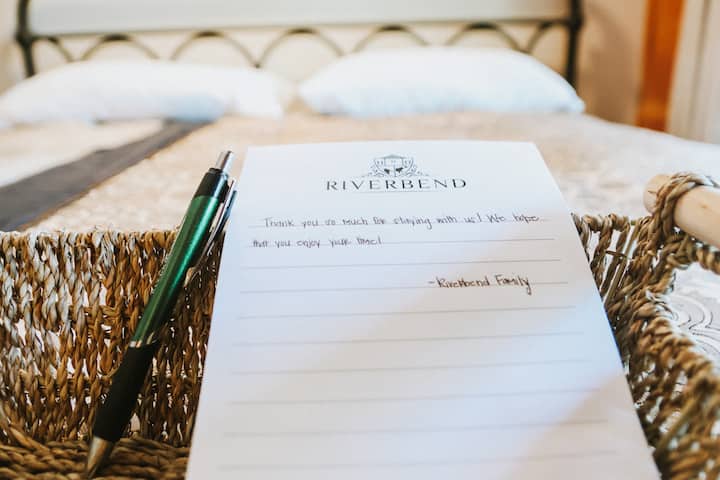 RIVERBEND
Thank you so much for staying with us! We hope
that you enjoy your time!
-Riverbend Family